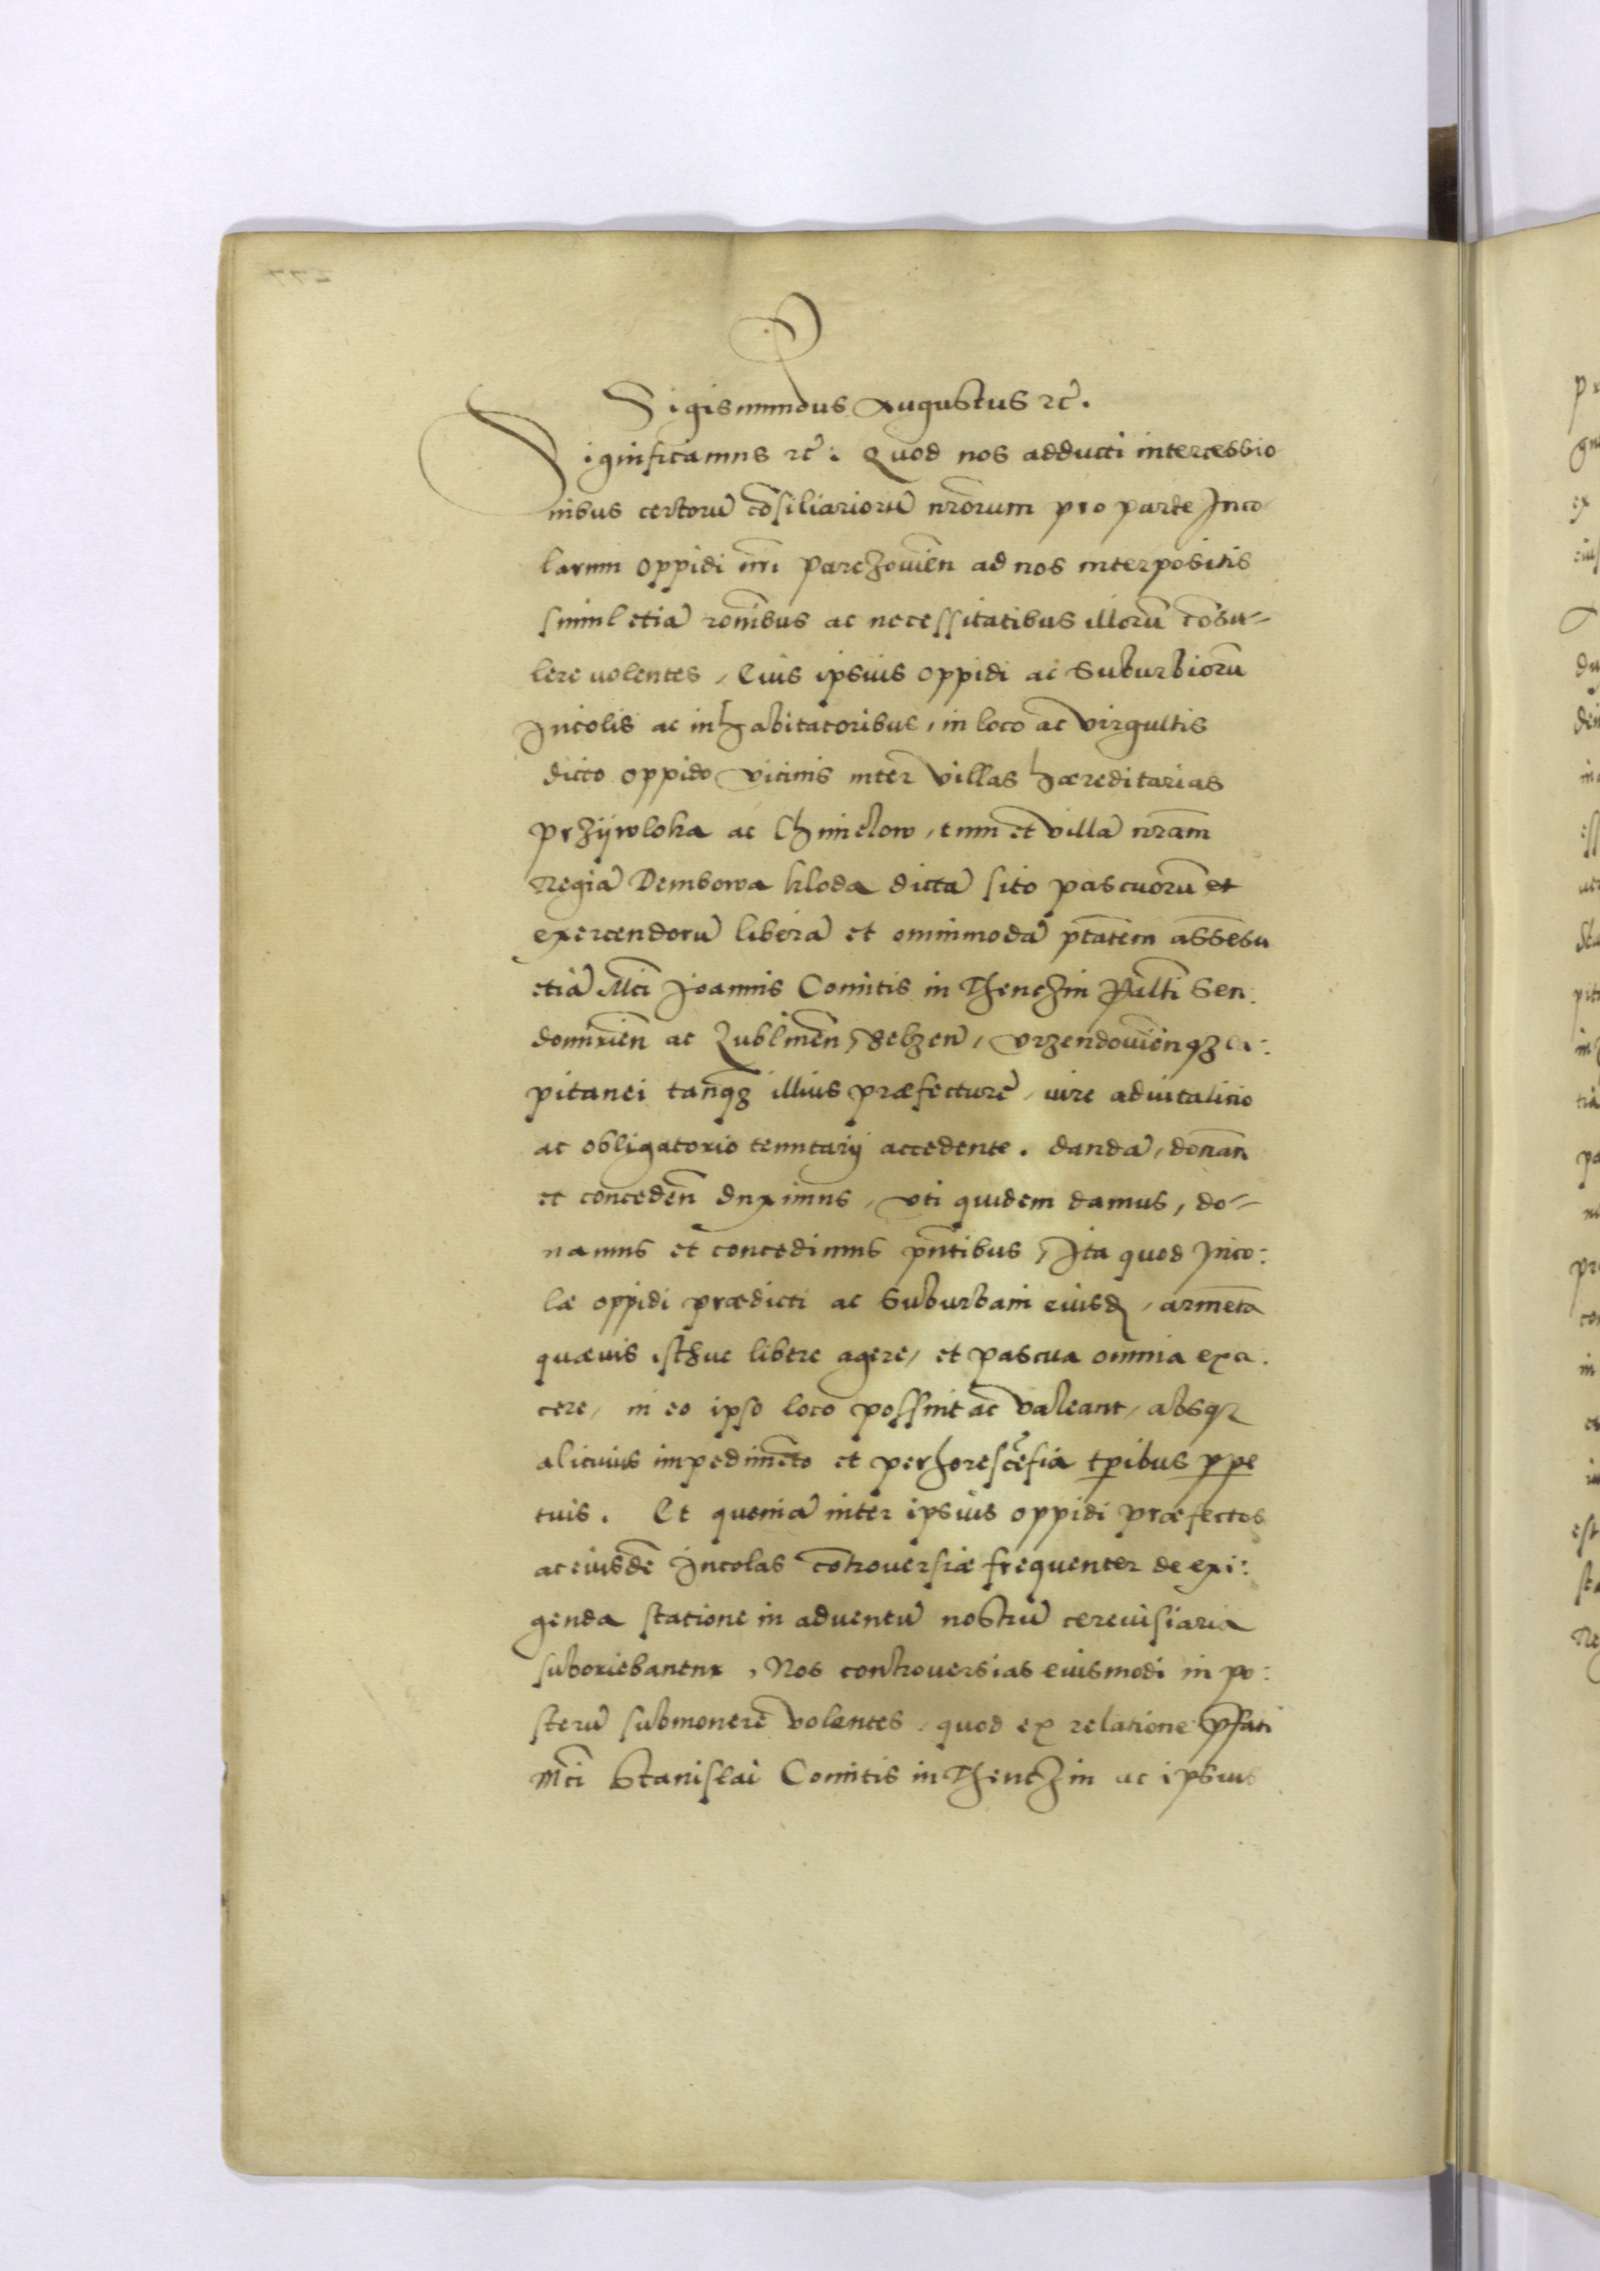 Sigismundus Augustus rc̃.
Significamus rc̃: Quod nos adducti intercessio
nibus certorũ cõsiliariorũ nrõrum pro parte Inco
larum oppidi nri Parczouień ad nos interpositis
simul etiã rõnibus ac necessitatibus illorũ cõsu-
lere uolentes, Eius ipsius oppidi ac Suburbiorũ
Incolis ac inhabitatoribus, in loco ac virgultis
dicto oppido vicinis inter villas hæreditarias
Przÿwloka ac Chmielow, tum et villã nrãm
Regiã Dembowa kloda dictã sito pascuorũ et
exercendorũ liberã et omnimodã ptãtem assensu
etiã Mci Joannis Comitis in Thenczin Palti Sen:
domirień ac Lublineń, Belzeń, vrzendouieńqz Ca:
pitanei tanqz illius præfecturę, iure aduitalitio
ac obligatorio tenutarij accedente. dandã, donań
et concedeń duximus, vti quidem damus, do-
namus et concedimus pntibus, Ita quod Inco:
læ oppidi prædicti ac Suburbani eiusd, armẽta
quæuis isthuc libere agere, et pascua omnia exer
cere, in eo ipso loco possint ac valeant, absq
alicuius impedimẽto et perhorescẽsia tpibus ppe
tuis. Et quoniã inter ipsius oppidi præfectos
ac eiusdẽ Incolas cõtrouersiæ frequenter de exi:
genda statione in aduentũ nostrũ cereuisiaria
suboriebantur, Nos controuersias eiusmodi in po:
sterũ submouere volentes, quod ex relatione pfati
Mci Stanislai Comitis in Thenczin ac ipsius